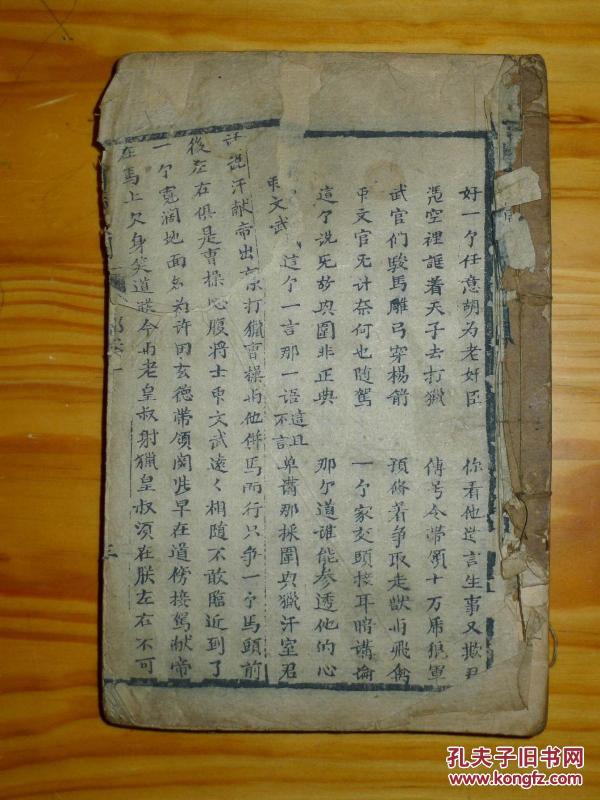 好一个任意胡为老奸臣 你看他造言生事又欺君
凭空裡誆着天子去打獵 傳号令带領十万虎狼軍
武官们駿馬雕弓穿楊箭 預俻着争取走獸与飛禽
众文官无计奈何也随駕 一个家交頭接耳暗講論
這个说无故央圍非正典 那个道谁能参透他的心
众文武 這个一言那一语這且不言单
说汗献帝出京打獵曹操与他併馬而行只争一个馬頭前
後左右俱是曹操心腹將士众文武遠く相随不敢臨近到了
一个寬阔地面名为许田玄德带領関张早在道傍接駕献帝
在馬上欠身笑道朕今与老皇叔射獵皇叔须在朕左右不可
三
孔夫子旧书网
www.kongfz.com